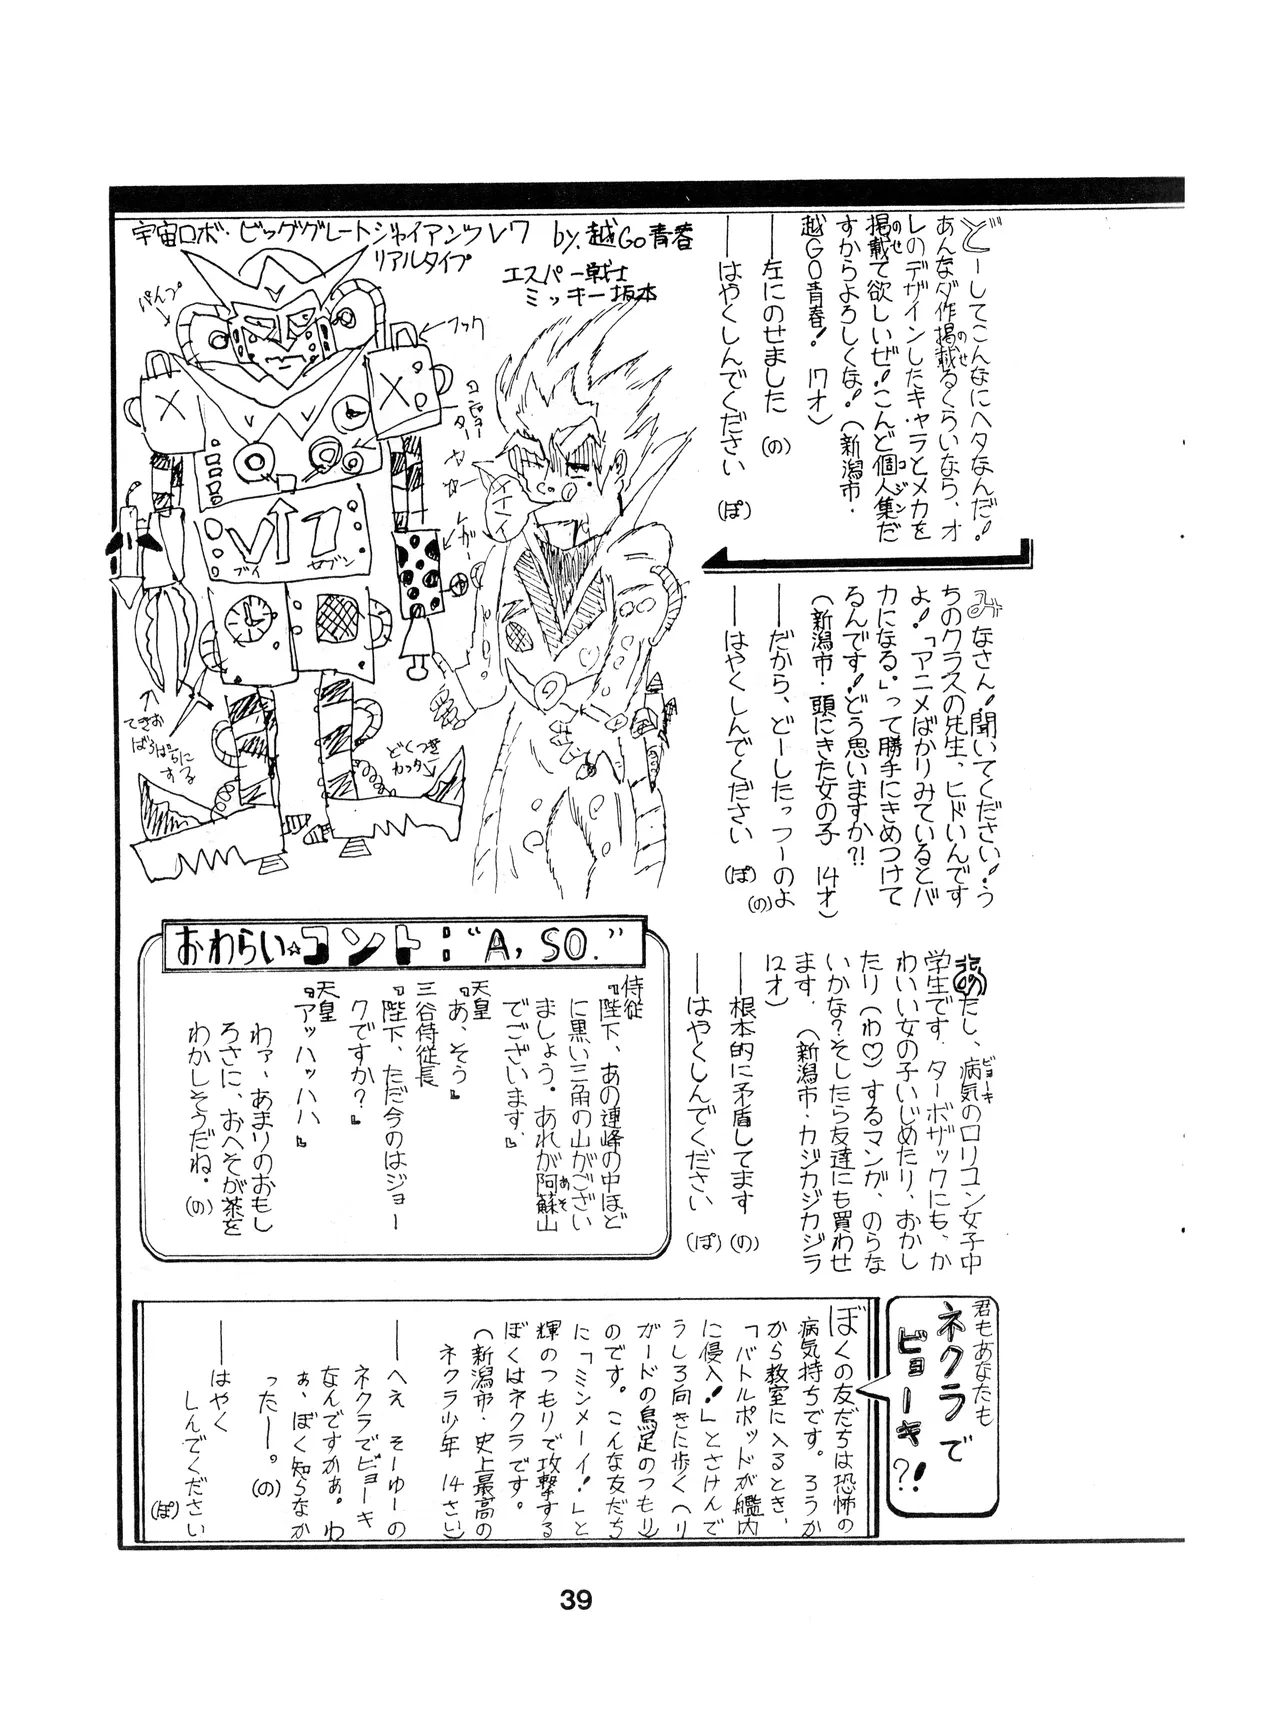 どーしてこんなにヘタなんだ!
あんなダ作掲載るくらいなら、オ
レのデザインしたキャラとメカを
掲載て欲しいぜ!こんど個人集だ
すからよろしくな!(新潟市・
越GO青春! 17才)
――左にのせました (の)
――はやくしんでください (ぽ)
宇宙ロボ・ビッググレートジャイアンツV7 by.越Go青春
リアルタイプ
エスパー戦士
ミッキー坂本
ぱんぷ
フック
レガー
イイイ
X
X
V17
ブイ
セブン
てきお
ばらばらに
する
どくつき
カッター
みなさん!聞いてください!う
ちのクラスの先生、ヒドいんです
よ!「アニメばかりみているとバ
カになる。」って勝手にきめつけて
るんです!どう思いますか?!
(新潟市・頭にきた女の子 14才)
――だから、どーしたっつーのよ (の)
――はやくしんでください (ぽ)
あたし、病気のロリコン女子中
学生です.ターボザックにも、か
わいい女の子いじめたり、おかし
たり(わ♡)するマンガ、のらな
いかな?そしたら友達にも買わせ
ます.(新潟市・カジカジカジラ
12才)
――根本的に矛盾してます (の)
――はやくしんでください (ぽ)
おわらい☆コント:"A, SO."
侍従
『陛下、あの連峰の中ほど
に黒い三角の山がござい
ましょう。あれが阿蘇山
でございます.』
天皇
『あ、そう』
三谷侍従長
『陛下、ただ今のはジョー
クですか?』
天皇
『アッハッハハ』
わァ、あまりのおもし
ろさに、おへそが茶を
わかしそうだね. (の)
君もあなたも
ネクラで
ビョーキ
?!
ぼくの友だちは恐怖の
病気持ちです。ろうか
から教室に入るとき、
「バトルポッドが艦内
に侵入!」とさけんで
うしろ向きに歩く(リ
ガードの鳥足のつもり)
のです。こんな友だち
に「ミンメーイ!」と
輝のつもりで攻撃する
ぼくはネクラです。
(新潟市・史上最高の
ネクラ少年 14さい)
――へえ そーゆーの
ネクラでビョーキ
なんですかぁ。わ
ぁ、ぼく知らなか
ったー。 (の)
――はやく
しんでください
(ぽ)
39